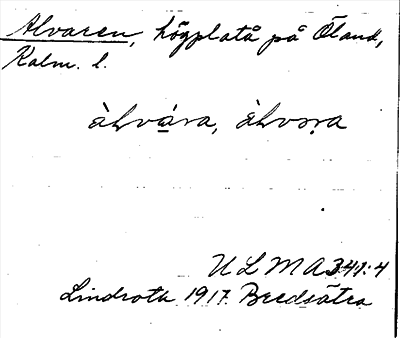 Alvaren, högplatå på Öland,
Kalm. l.
àLvára, àLvəra
ULMA 341:4
Lindroth 1917. Bredsätra